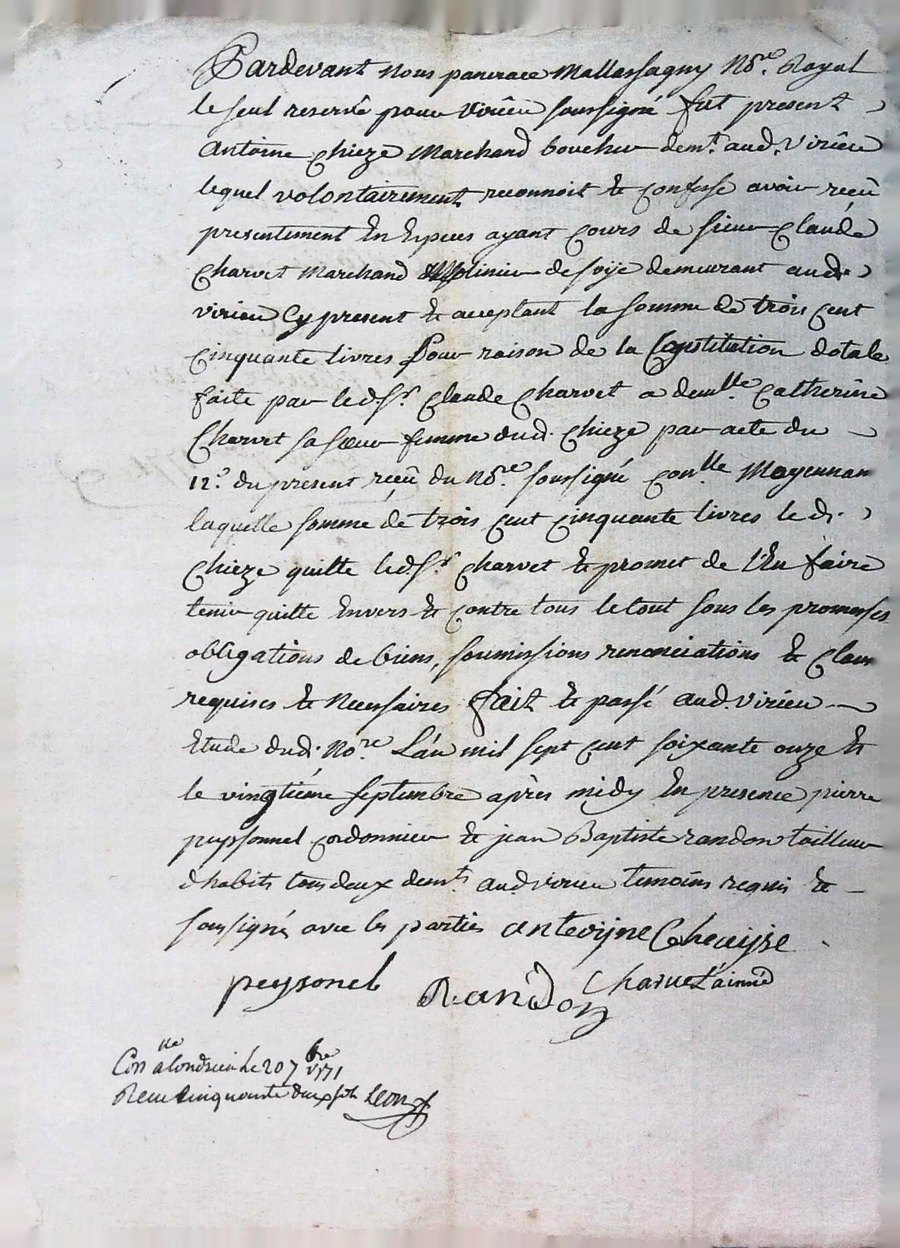 Pardevant Nous pancrace Mallassagny No.re Royal
le seul reservé pour Virieu soussigné fut present
Antoine Chieze Marchand boucher dem.t aud. Virieu
lequel volontairement reconnoit et confesse avoir reçû
presentement En Especes ayant Cours de sieur Claude
Charvet Marchand Molinier de soÿe demeurant aud.
virieu Cy present et acceptant la somme de trois cent
Cinquante livres Pour raison de la Constitution dotale
faite par led. s.r Claude Charvet a demlle Catherine
Charvet sa sœur femme dud. Chieze par acte du
12.e du present reçû du No.re soussigné con.lle Moyennan
laquelle somme de trois cent cinquante livres led.
Chieze quitte led. s.r Charvet et promet de l'En faire
tenir quitte Envers et contre tous le tout sous les promesses
obligations de biens, soumissions renonciations et claus
requises et Necessaires fait et passé aud. Virieu
Etude dud. No.re L'an mil sept cent soixante onze et
le vingtiéme septembre après midy En presence pierre
peyssonnel cordonnier et jean Baptiste randon tailleur
d'habits tous deux dem.ts aud virieu temoins requis et
soussignés avec les parties antoijne Cheaijze
peyssonel Randon Charvet L'ainné
Con.lle a Condrieu le 20 7bre 1771
Reçu cinquante deux sols Leon